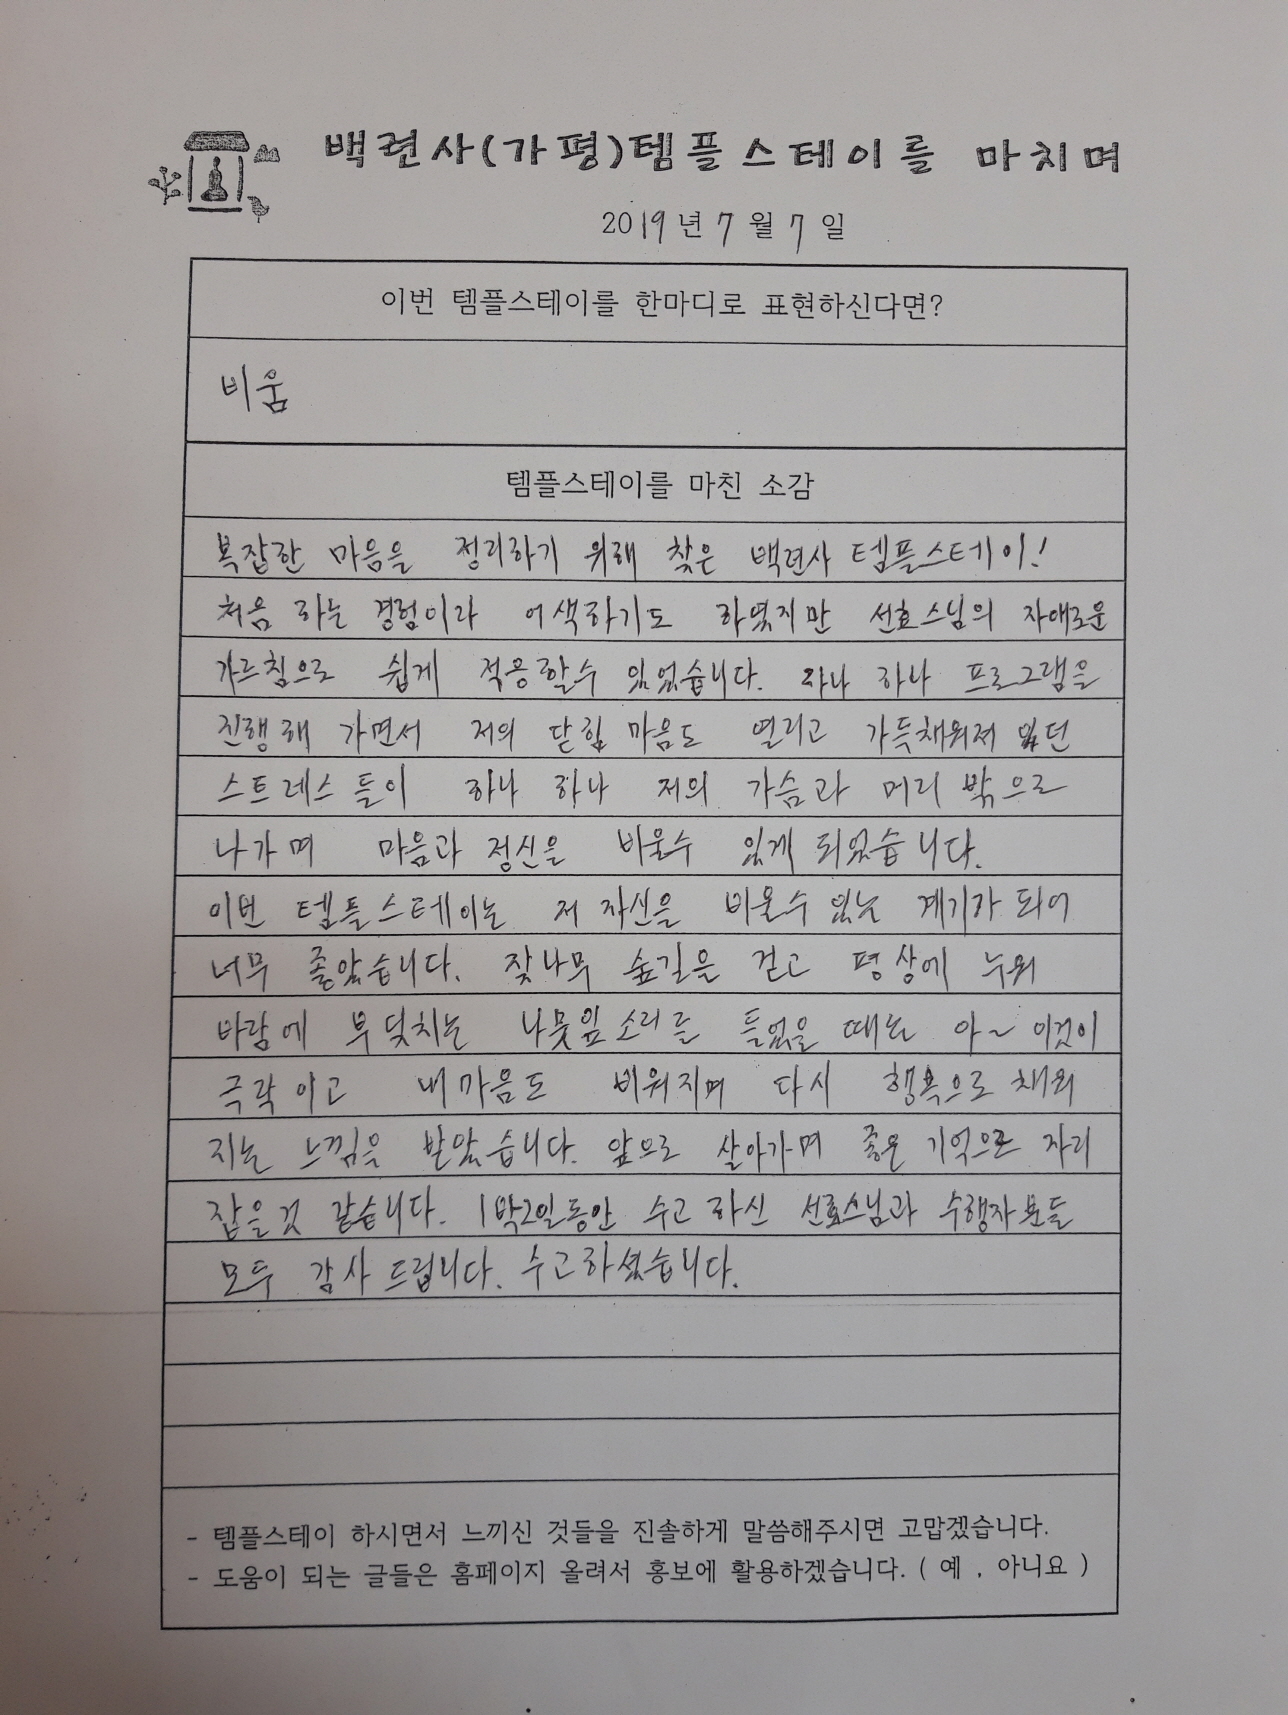 백련사(가평)템플스테이를 마치며
2019년 7월 7일
이번 템플스테이를 한마디로 표현하신다면?
비움
템플스테이를 마친 소감
복잡한 마음을 정리하기 위해 찾은 백련사 템플스테이!
처음 하는 경험이라 어색하기도 하였지만 선효스님의 자애로운
가르침으로 쉽게 적응할수 있었습니다. 하나 하나 프로그램을
진행해 가면서 저의 닫힌 마음도 열리고 가득채워져 있던
스트레스들이 하나 하나 저의 가슴과 머리 밖으로
나가며 마음과 정신을 비울수 있게 되었습니다.
이번 템플스테이는 저 자신을 비울수 있는 계기가 되어
너무 좋았습니다. 잣나무 숲길을 걷고 평상에 누워
바람에 부딪치는 나뭇잎소리를 들었을 때는 아~ 이것이
극락이고 내마음도 비워지며 다시 행복으로 채워
지는 느낌을 받았습니다. 앞으로 살아가며 좋은 기억으로 자리
잡을것 같습니다. 1박2일동안 수고 하신 선효스님과 수행자분들
모두 감사 드립니다. 수고하셨습니다.
- 템플스테이 하시면서 느끼신 것들을 진솔하게 말씀해주시면 고맙겠습니다.
- 도움이 되는 글들은 홈페이지 올려서 홍보에 활용하겠습니다. ( 예 , 아니요 )